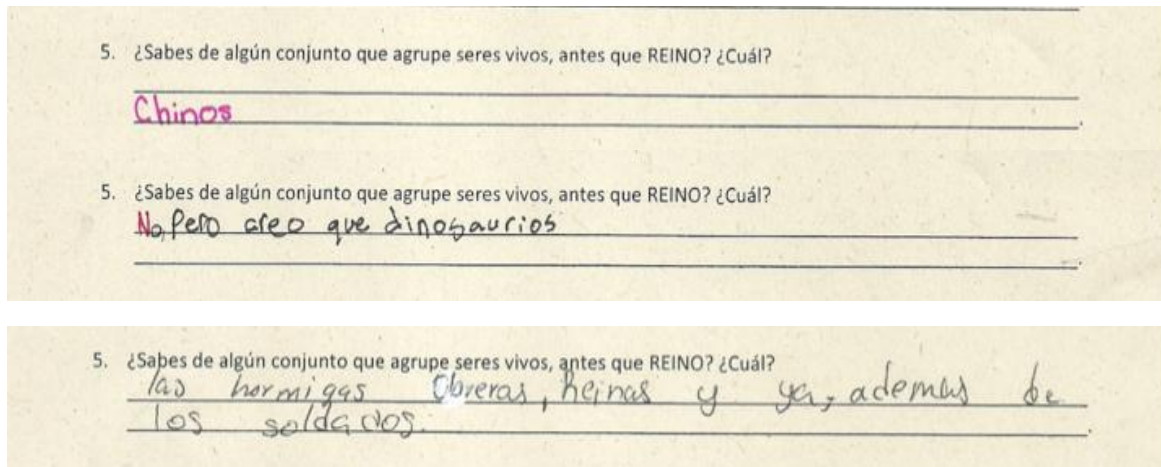 5. ¿Sabes de algún conjunto que agrupe seres vivos, antes que REINO? ¿Cuál?
Chinos
5. ¿Sabes de algún conjunto que agrupe seres vivos, antes que REINO? ¿Cuál?
No, Pero creo que dinosaurios
5. ¿Sabes de algún conjunto que agrupe seres vivos, antes que REINO? ¿Cuál?
las hormigas Obreras, Reinas y ya, ademas de
los soldados.